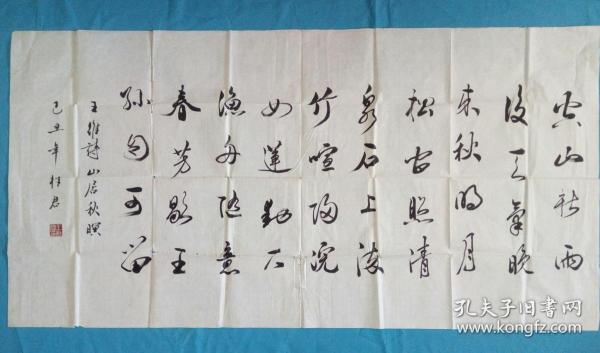 空山新雨
後天氣晚
来秋明月
松间照清
泉石上流
竹喧归浣
女莲動下
漁舟随意
春芳歇王
孙自可留
王維詩山居秋暝
己丑年
孔夫子旧书网
www.kongfz.com